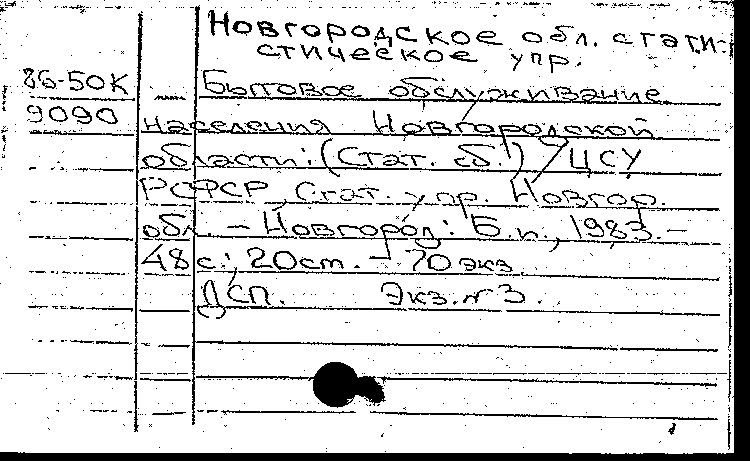 Новгородское обл. стати-
стическое упр.
86-50К Бытовое обслуживание
9090 населения Новгородской
области: (Стат. сб.) / ЦСУ
РСФСР, Стат. упр. Новгор.
обл. – Новгород: Б.и., 1983. –
48 с.; 20 см. – 70 экз.
ДСП. Экз. № 3.